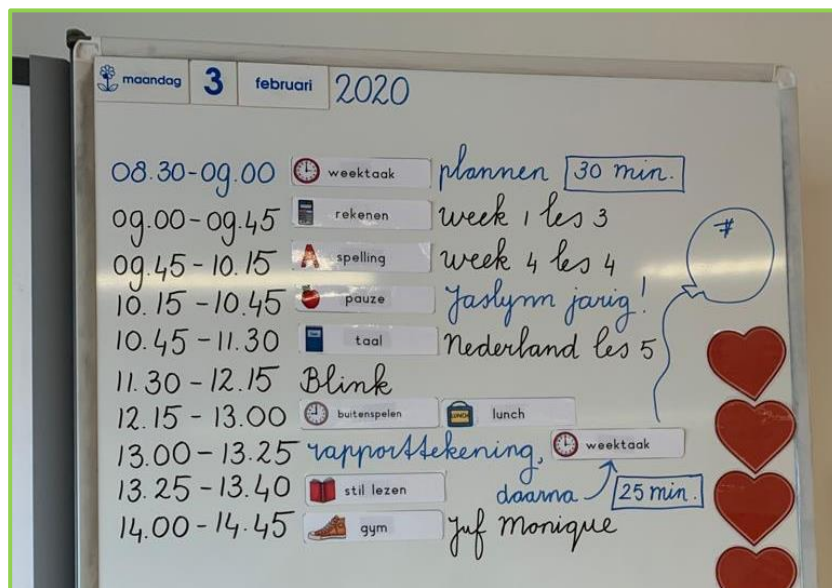 maandag 3 februari 2020
08.30-09.00 weektaak plannen 30 min.
09.00-09.45 rekenen week 1 les 3
09.45-10.15 spelling week 4 les 4
10.15-10.45 pauze Jaslynn jarig!
10.45-11.30 taal Nederland les 5
11.30-12.15 Blink
12.15-13.00 buitenspelen LUNCH lunch
13.00-13.25 rapporttekening, weektaak
daarna 25 min.
13.25-13.40 stil lezen
14.00-14.45 gym Juf Monique